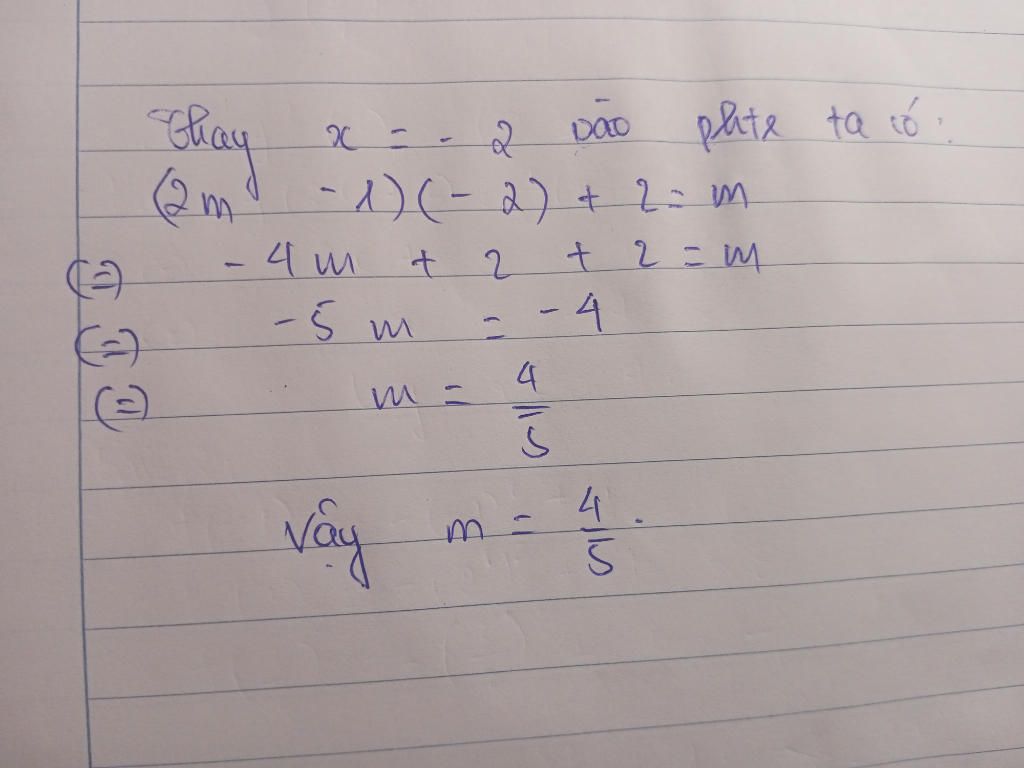 Thay x = - 2 vào phtr ta có:
(2m - 1)(- 2) + 2 = m
(=) - 4m + 2 + 2 = m
(=) - 5 m = - 4
(=) m = 4/5
Vậy m = 4/5.